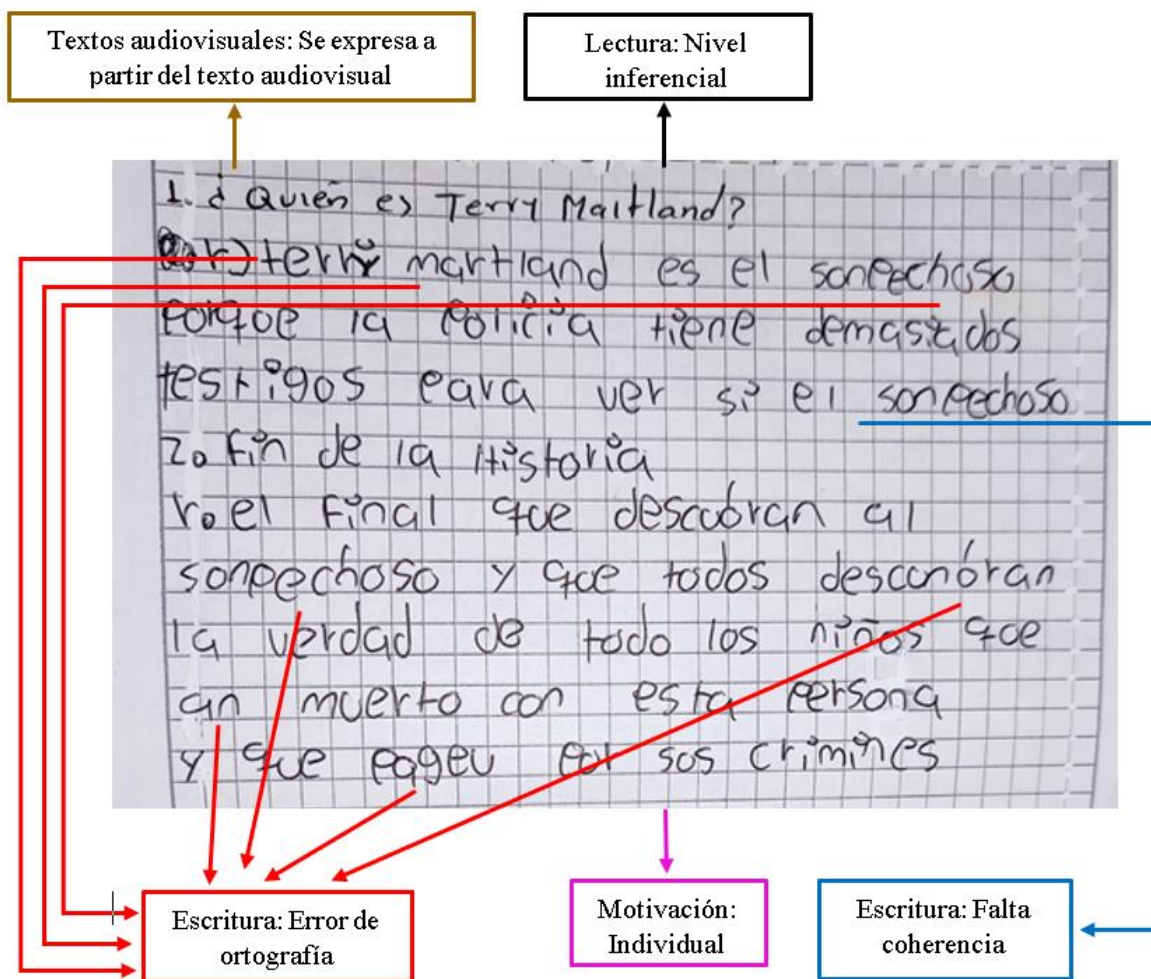 Textos audiovisuales: Se expresa a
partir del texto audiovisual
Lectura: Nivel
inferencial
1. ¿Quién es Terry Maitland?
r) terry martland es el sonpechoso
porque la policia tiene demasiados
testigos para ver si el sonpechoso
2. fin de la Historia
r. el Final que descubran al
sonpechoso y que todos desconbran
la verdad de todo los niños que
an muerto con esta persona
y que pageu por sos crimines
Escritura: Error de
ortografía
Motivación:
Individual
Escritura: Falta
coherencia